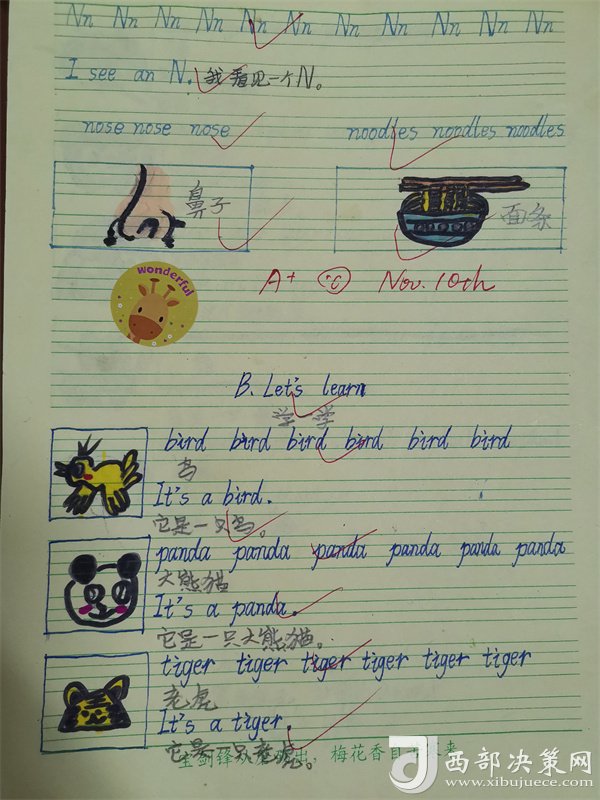 Nn Nn Nn Nn Nn Nn Nn Nn Nn Nn Nn
I see an N. 我看见一个N。
nose nose nose noodles noodles noodles
鼻子 面条
wonderful
A+ Nov. 10th
B. Let's learn
学一学
bird bird bird bird bird bird
鸟
It's a bird.
它是一只鸟。
panda panda panda panda panda panda
大熊猫
It's a panda.
它是一只大熊猫。
tiger tiger tiger tiger tiger tiger
老虎
It's a tiger.
它是一只老虎。
宝剑锋从磨砺出,梅花香自苦寒来
西部决策网
www.xibujuece.com